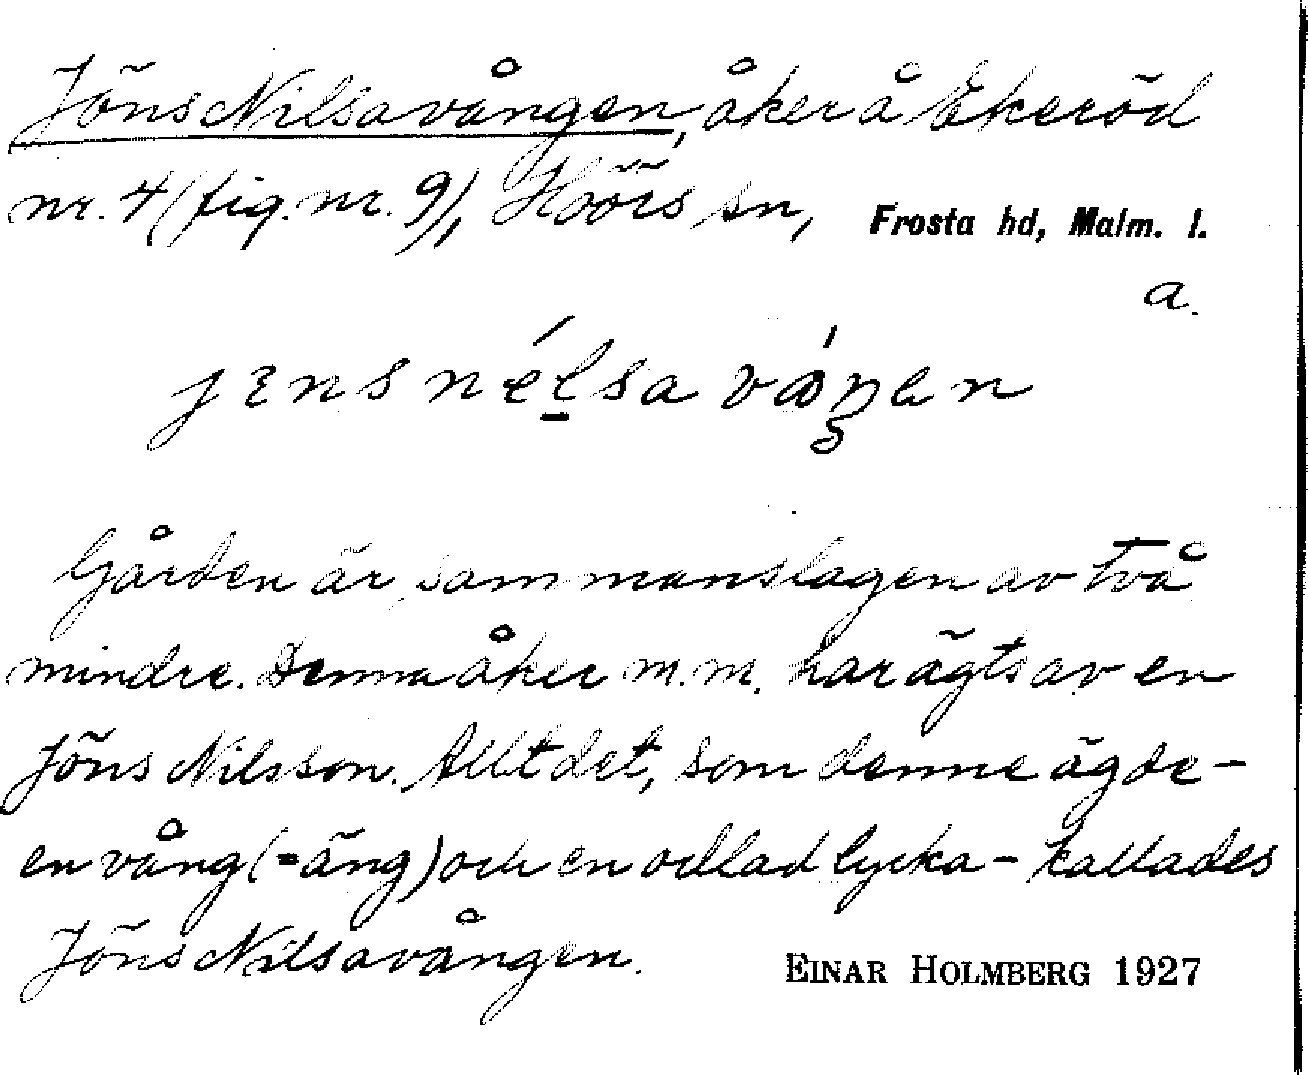 Jöns Nilsavången, åker å Ekeröd
nr. 4 (fig. nr. 9), Höörs sn, Frosta hd, Malm. l.
a.
jɛns nélsa våŋen
Gården är sammanslagen av två
mindre. Denna åker m.m. har ägts av en
Jöns Nilsson. Allt det, som denne ägde –
en vång (= äng) och en odlad lycka – kallades
Jöns Nilsavången.
EINAR HOLMBERG 1927